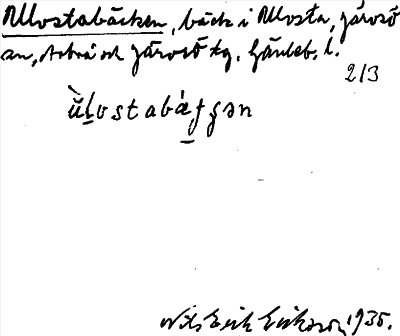 Ullostabäcken, bäck i Ullosta, Järvsö
sn, Arbrå och Järvsö tg, Gävleb. l.
2/3
ùḷostabäʃʃən
Nils Erik Eriksson, 1935.